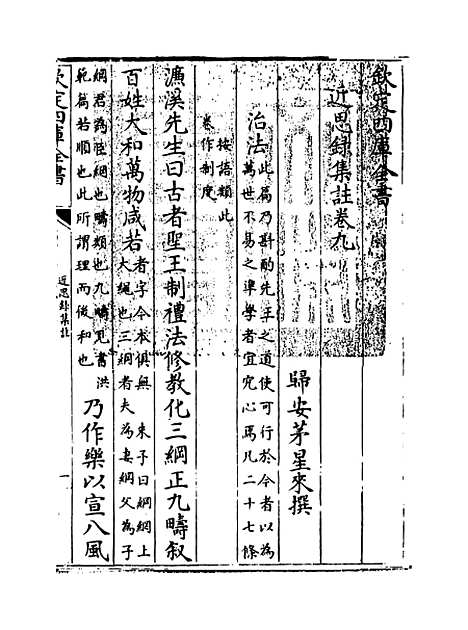 欽定四庫全書
近思錄集註卷九
歸安茅星來撰
治法
此篇乃斟酌先王之道使可行於今者以為
萬世不易之準學者宜究心焉凡二十七條
按語類此
卷作制度
濂溪先生曰古者聖王制禮法修教化三綱正九疇敘
百姓大和萬物咸若
者字今本俱無 朱子曰綱網上
大繩也三綱者夫為妻綱父為子
綱君為臣綱也疇類也九疇見書洪
範篇若順也此所謂理而後和也
乃作樂以宣八風
欽定四庫全書
近思錄集註
一